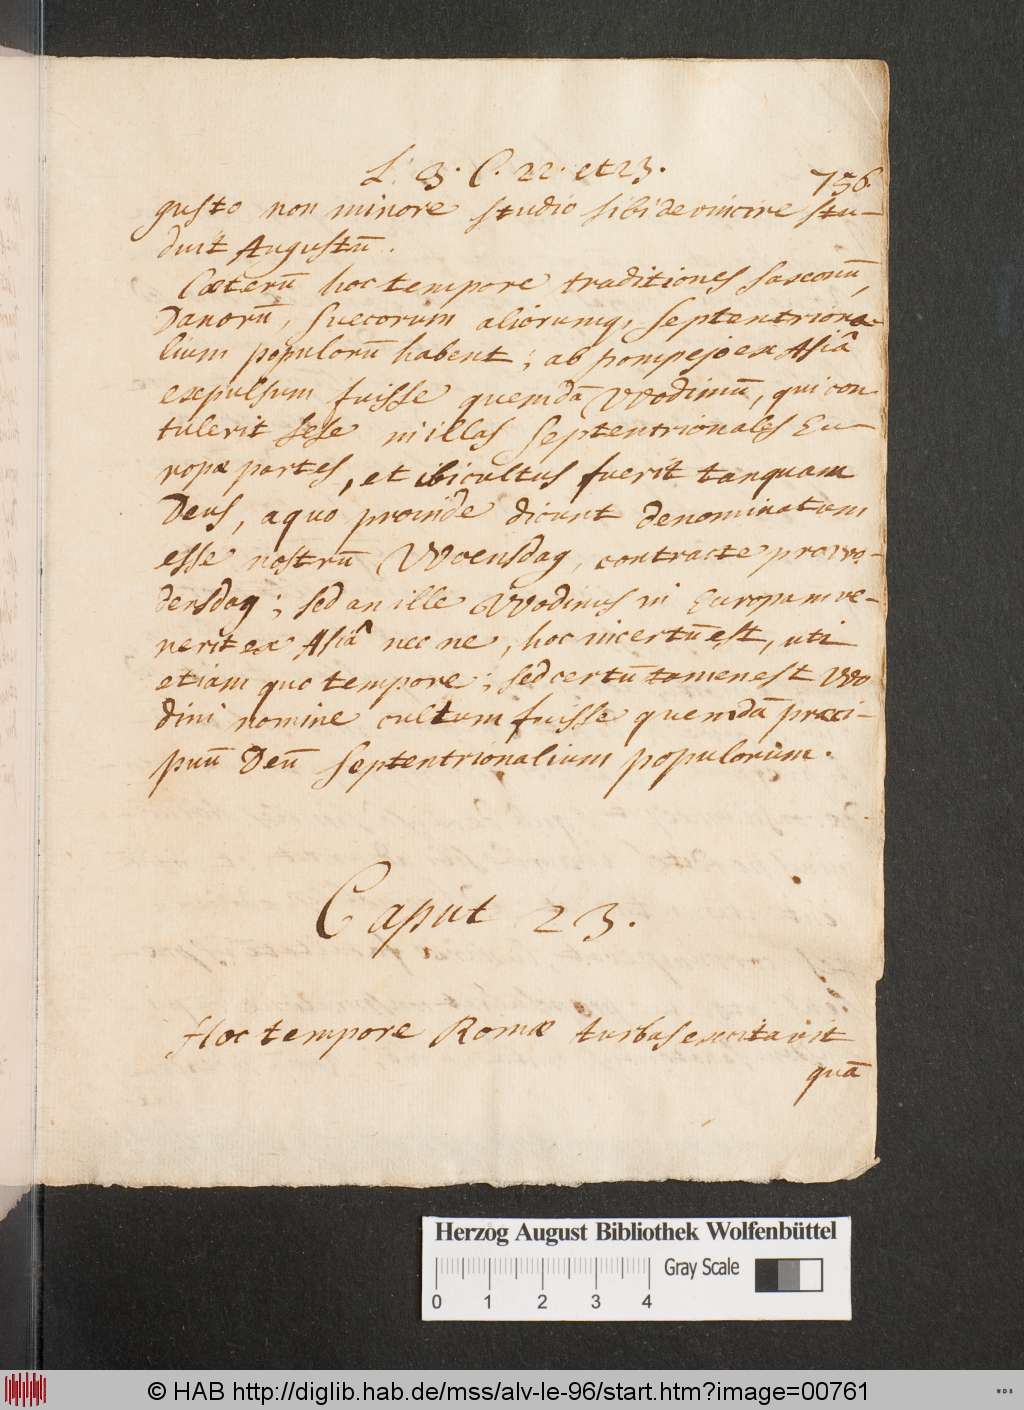 L. 3. C. 22. et 23.
756.
gusto non minore studio sibi devincire stu-
duit Augustū.
Cæterū hoc tempore traditiones Saxonū,
Danorū, Suecorum aliorumq, Septentriona-
lium populorū habent; ab pompejo ex Asiâ
expulsum fuisse quemdā Wodinū, qui con
tulerit sese in illas Septentrionales Eu-
ropæ partes, et ibi cultus fuerit tanquam
Deus, a quo proinde dicunt denominatum
esse nostrū Woensdag, contracte pro wo-
densdag; sed an ille Wodinus in Europam ve-
nerit ex Asiâ nec ne, hoc incertū est, uti
etiam quo tempore; sed certū tamen est Wo
dini nomine cultum fuisse quemdā præci-
puū Deū Septentrionalium populorum.
Caput 23.
Hoc tempore Romæ turbas excitavit
quā
Herzog August Bibliothek Wolfenbüttel
Gray Scale
0 1 2 3 4
© HAB http://diglib.hab.de/mss/alv-le-96/start.htm?image=00761